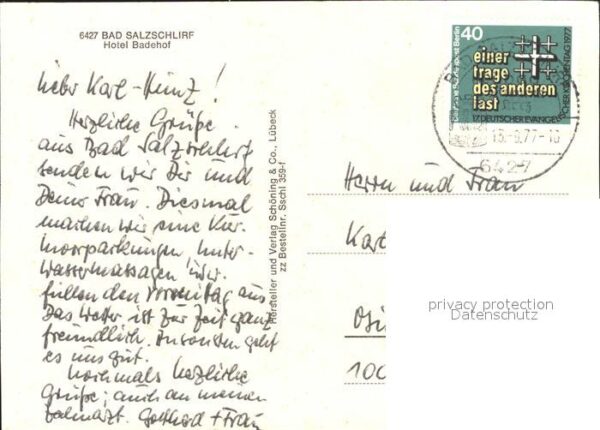 6427 BAD SALZSCHLIRF
Hotel Badehof
Lieber Karl-Heinz!
Herzliche Grüße
aus Bad Salzschlirf
senden wir Dir und
Deine Frau. Diesmal
machen wir eine Kur.
Moorpackungen, Unter-
wassermassagen usw.
füllen den Vormittag aus
Das Wetter ist zur Zeit ganz
freundlich. Ansonsten geht
es uns gut.
Nochmals herzliche
Grüße, auch an meinen
Zahnarzt. Gotthard + Frau
Hersteller und Verlag Schöning & Co., Lübeck
zz Bestellnr. Sschl 359-f
40
Deutsche Bundespost Berlin
einer
trage
des anderen
last
17. DEUTSCHER EVANGELISCHER KIRCHENTAG 1977
.77-16
6427
Herrn und Frau
privacy protection
Datenschutz
100